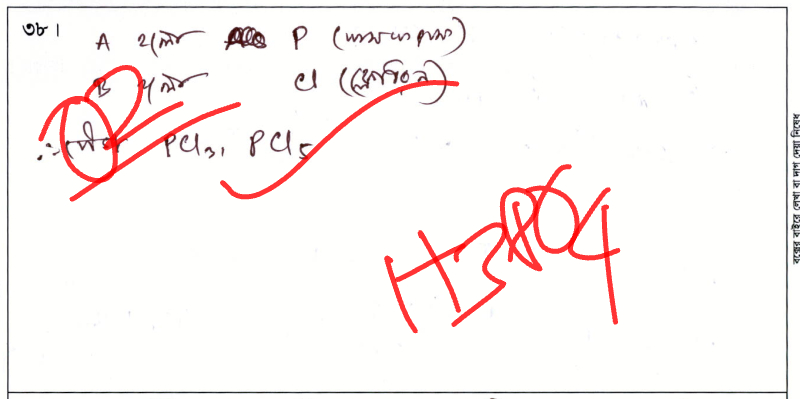 ৩৮।
A হলো P (ফসফরাস)
B হলো Cl (ক্লোরিন)
∴ যৌগ PCl₃, PCl₅
H3PO4
বক্সের বাইরে লেখা বা দাগ দেয়া নিষেধ